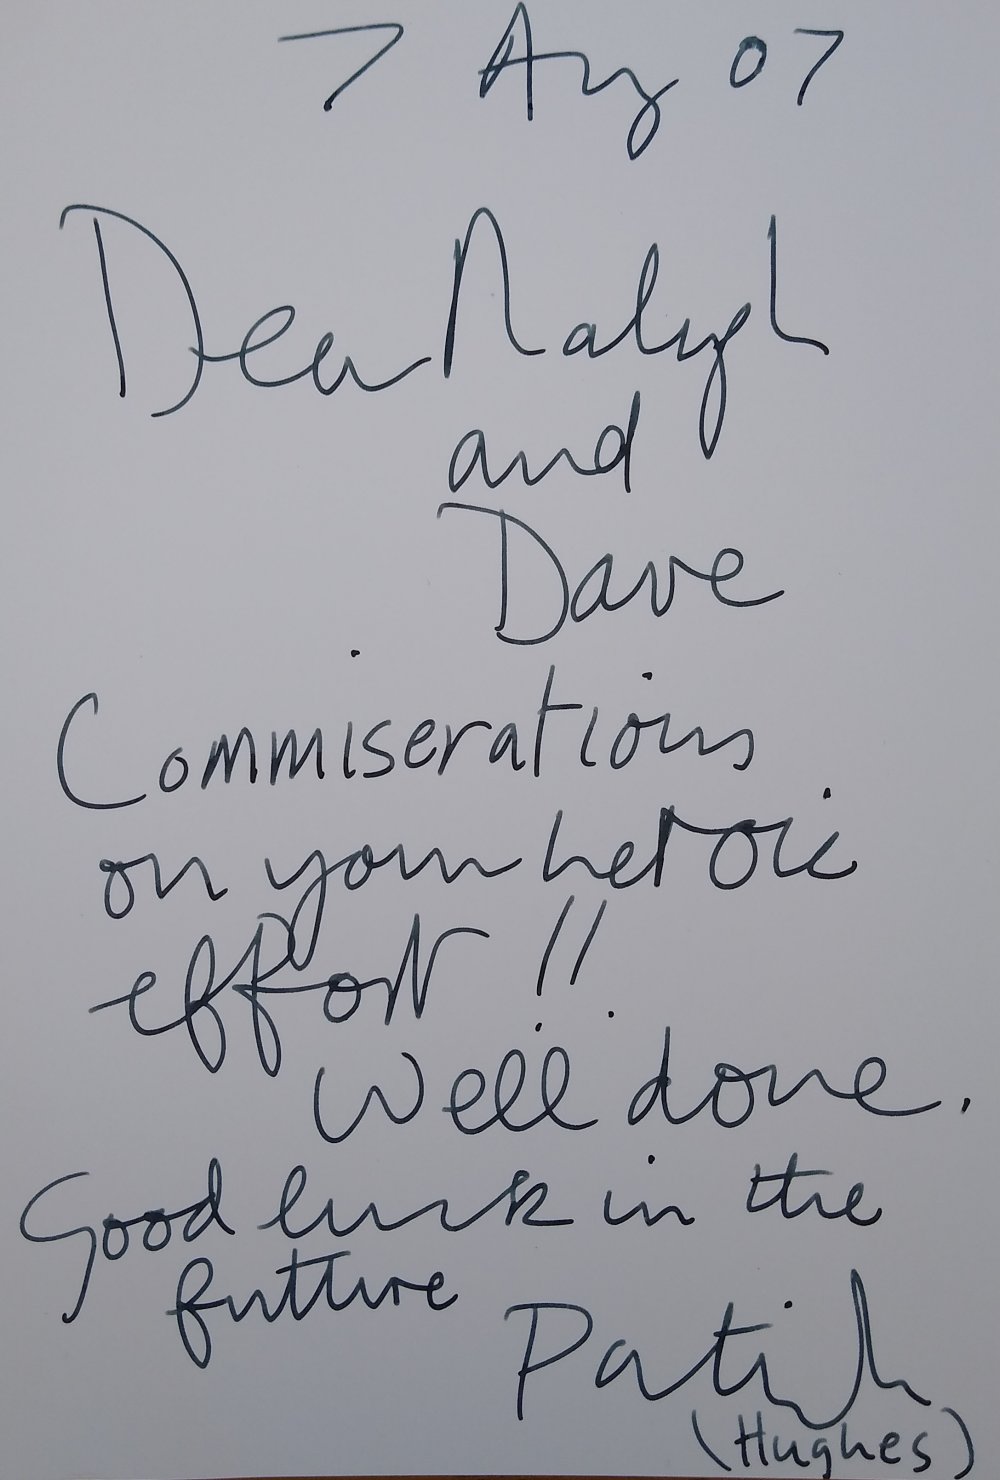 7 Aug 07
Dear Ralph
and
Dave
Commiserations
on your heroic
effort!!
Well done.
Good luck in the
future
Patrick
(Hughes)